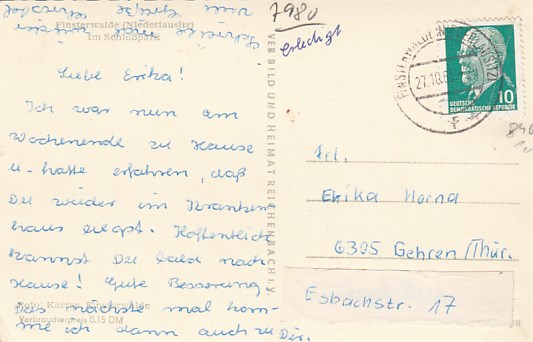 Finsterwalde (Niederlausitz)
Im Schloßpark
Liebe Erika!
Ich war nun am
Wochenende zu Hause
u. hatte erfahren, daß
Du wieder im Kranken
haus liegst. Hoffentlich
kannst Du bald nach
Hause! Gute Besserung.
Das nächste mal kom-
me ich dann auch zu Dir.
Foto: Karras, Finsterwalde
Verbraucherpreis 0,15 DM
VEB BILD UND HEIMAT REICHENBACH I. V.
7980
erledigt
27.10.6
DEUTSCHE
DEMOKRATISCHE REPUBLIK
10
Frl.
Erika Horna
6305 Gehren/Thür.
Esbachstr. 17